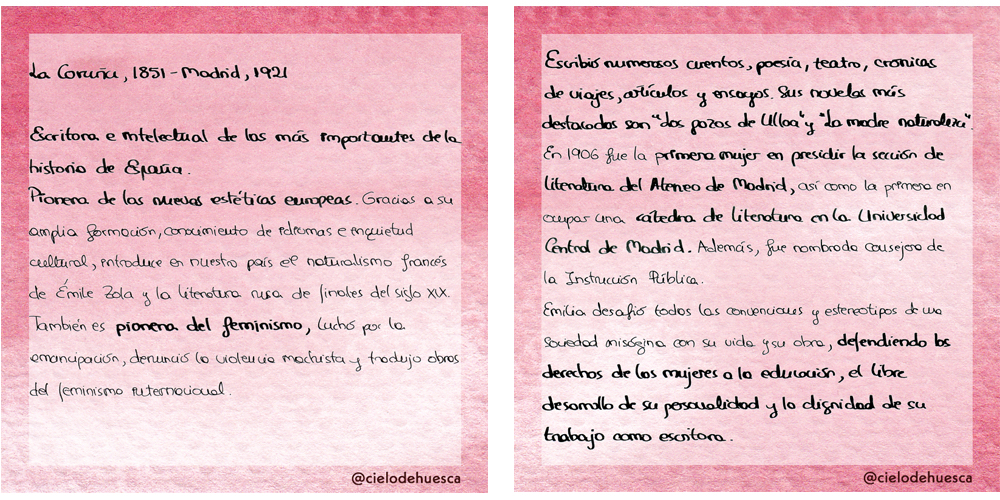 La Coruña, 1851 - Madrid, 1921
Escritora e intelectual de las más importantes de la
historia de España.
Pionera de las nuevas estéticas europeas. Gracias a su
amplia formación, conocimiento de idiomas e inquietud
cultural, introduce en nuestro país el naturalismo francés
de Émile Zola y la literatura rusa de finales del siglo XIX.
También es pionera del feminismo, luchó por la
emancipación, denunció la violencia machista y tradujo obras
del feminismo internacional.
@cielodehuesca
Escribió numerosos cuentos, poesía, teatro, crónicas
de viajes, artículos y ensayos. Sus novelas más
destacadas son "Los pazos de Ulloa" y "La madre naturaleza".
En 1906 fue la primera mujer en presidir la sección de
literatura del Ateneo de Madrid, así como la primera en
ocupar una cátedra de literatura en la Universidad
Central de Madrid. Además, fue nombrada consejera de
la Instrucción Pública.
Emilia desafió todas las convenciones y estereotipos de una
sociedad misógina con su vida y su obra, defendiendo los
derechos de las mujeres a la educación, el libre
desarrollo de su personalidad y la dignidad de su
trabajo como escritora.
@cielodehuesca